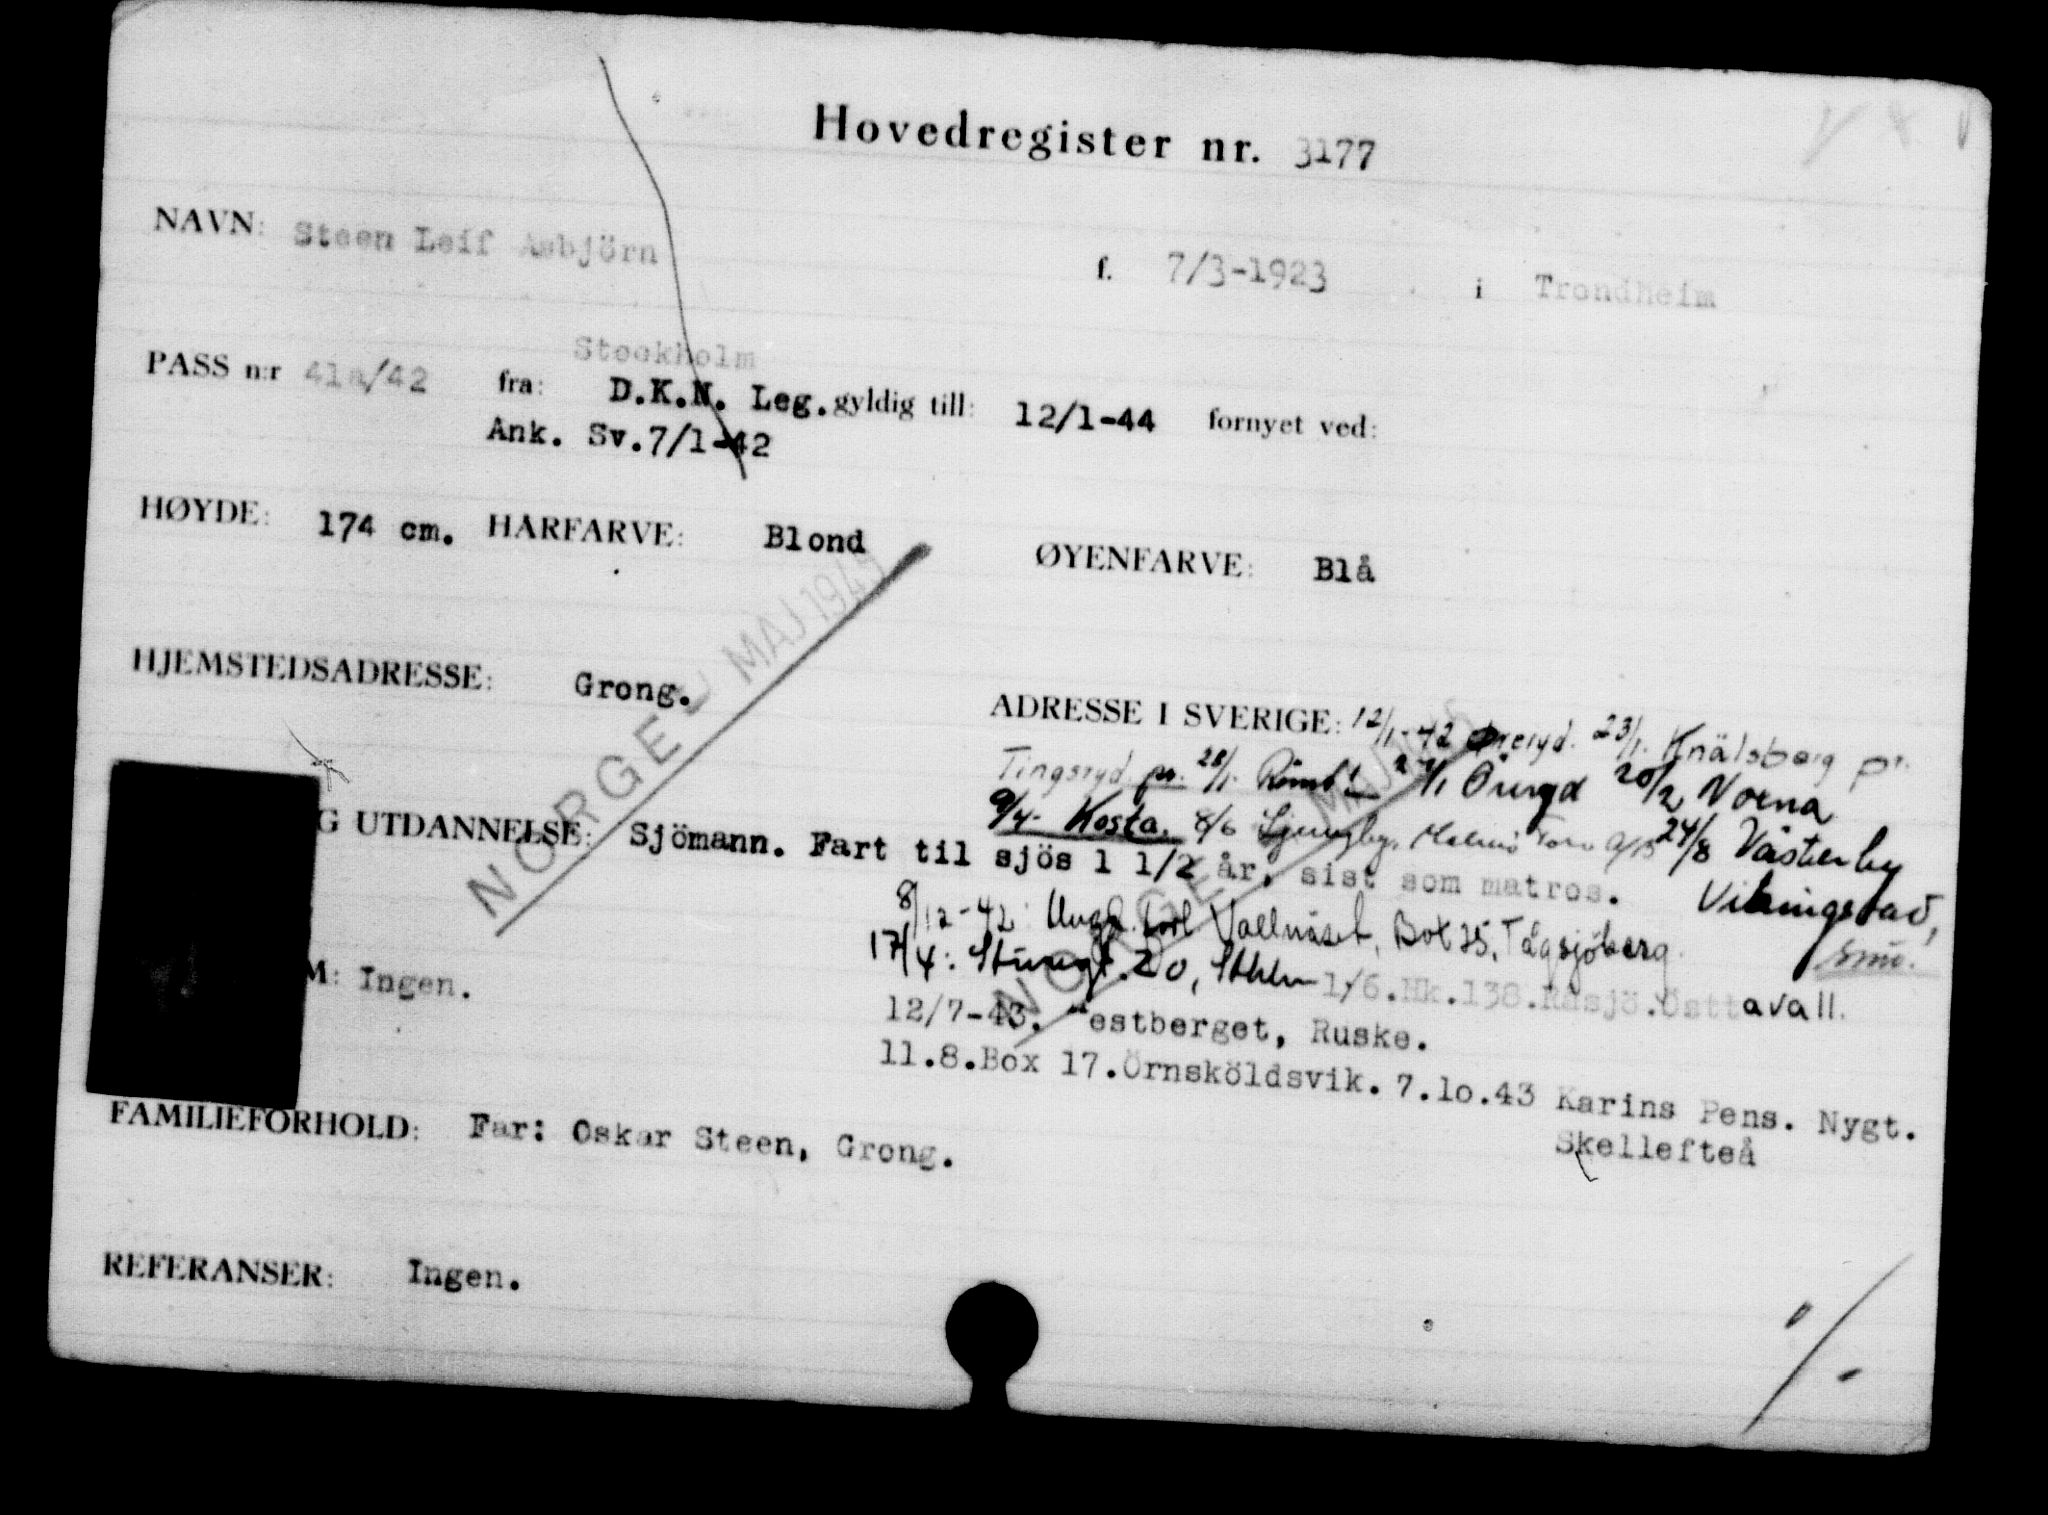 Hovedregister nr. 3177
NAVN: Steen Leif Asbjörn f. 7/3-1923 i Trondheim
Stockholm
PASS n:r 41a/42 fra: D.K.N. Leg. gyldig till: 12/1-44 fornyet ved:
Ank. Sv. 7/1-42
HØYDE: 174 cm. HÅRFARVE: Blond ØYENFARVE: Blå
NORGE MAJ 1945
HJEMSTEDSADRESSE: Grong.
ADRESSE I SVERIGE: 12/1-42 Öreryd. 23/1. Knälsberg pr.
Tingsryd pr. 28/1. 20/2 Norna
9/4- Kosta. 8/6 Ljungby, Malmö 24/8 Västerby
Vikingstad,
G UTDANNELSE: Sjömann. Fart til sjös 1 1/2 år, sist som matros.
8/12-42: Vallnäset, Box 25, Tågsjöberg.
17/4: 20, Sthlm 1/6. Hk.138. Råsjö. Östavall.
M: Ingen.
NORGE MAJ
12/7-43. estberget, Ruske.
11.8. Box 17. Örnsköldsvik. 7.10.43 Karins Pens. Nygt.
Skellefteå
FAMILIEFORHOLD: Far: Oskar Steen, Grong.
REFERANSER: Ingen.